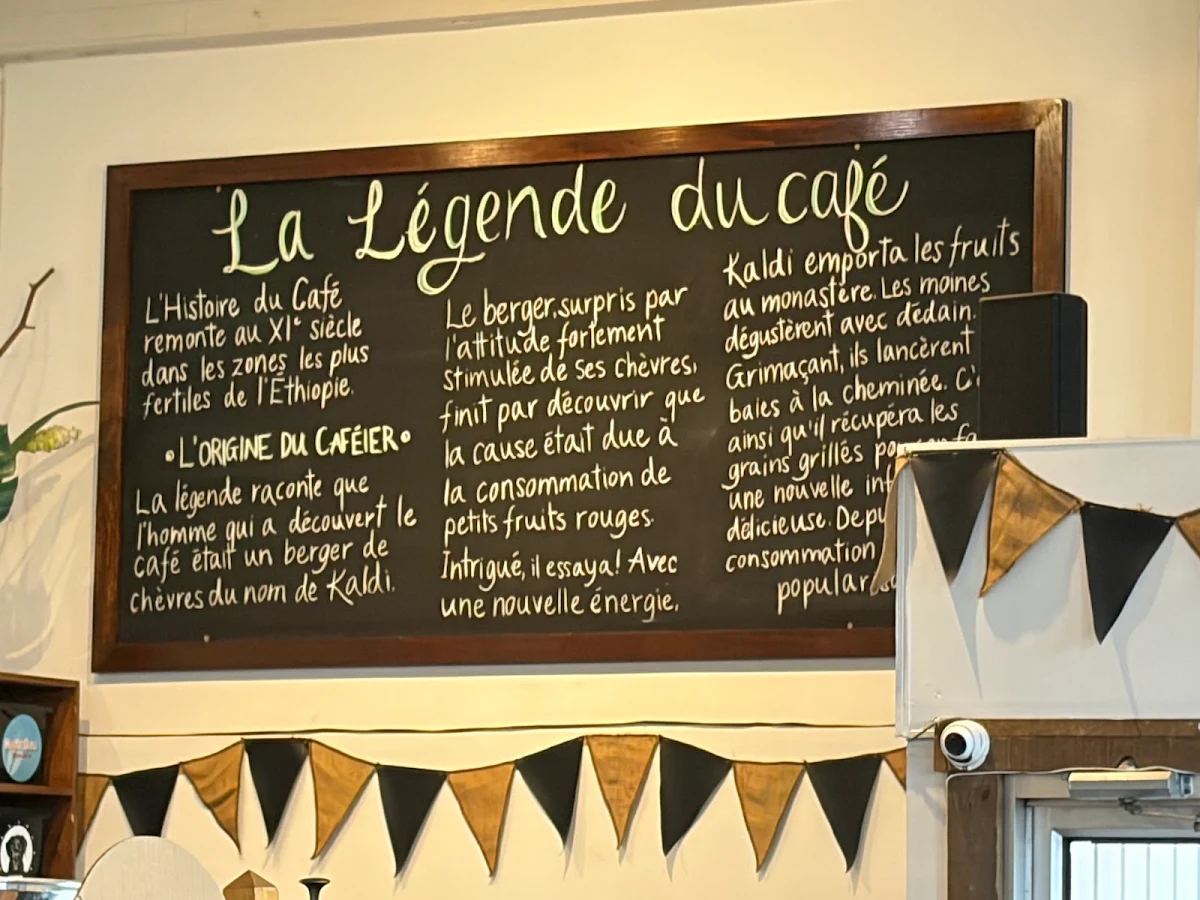 La Légende du café
L'Histoire du Café
remonte au XIe siècle
dans les zones les plus
fertiles de l'Ethiopie.
•L'ORIGINE DU CAFÉIER•
La légende raconte que
l'homme qui a découvert le
café était un berger de
chèvres du nom de Kaldi.
Le berger, surpris par
l'attitude fortement
stimulée de ses chèvres,
finit par découvrir que
la cause était due à
la consommation de
petits fruits rouges.
Intrigué, il essaya! Avec
une nouvelle énergie,
Kaldi emporta les fruits
au monastère. Les moines
dégustèrent avec dédain.
Grimaçant, ils lancèrent
baies à la cheminée.
ainsi qu'il récupéra les
grains grillés
une nouvelle
délicieuse.
consommation